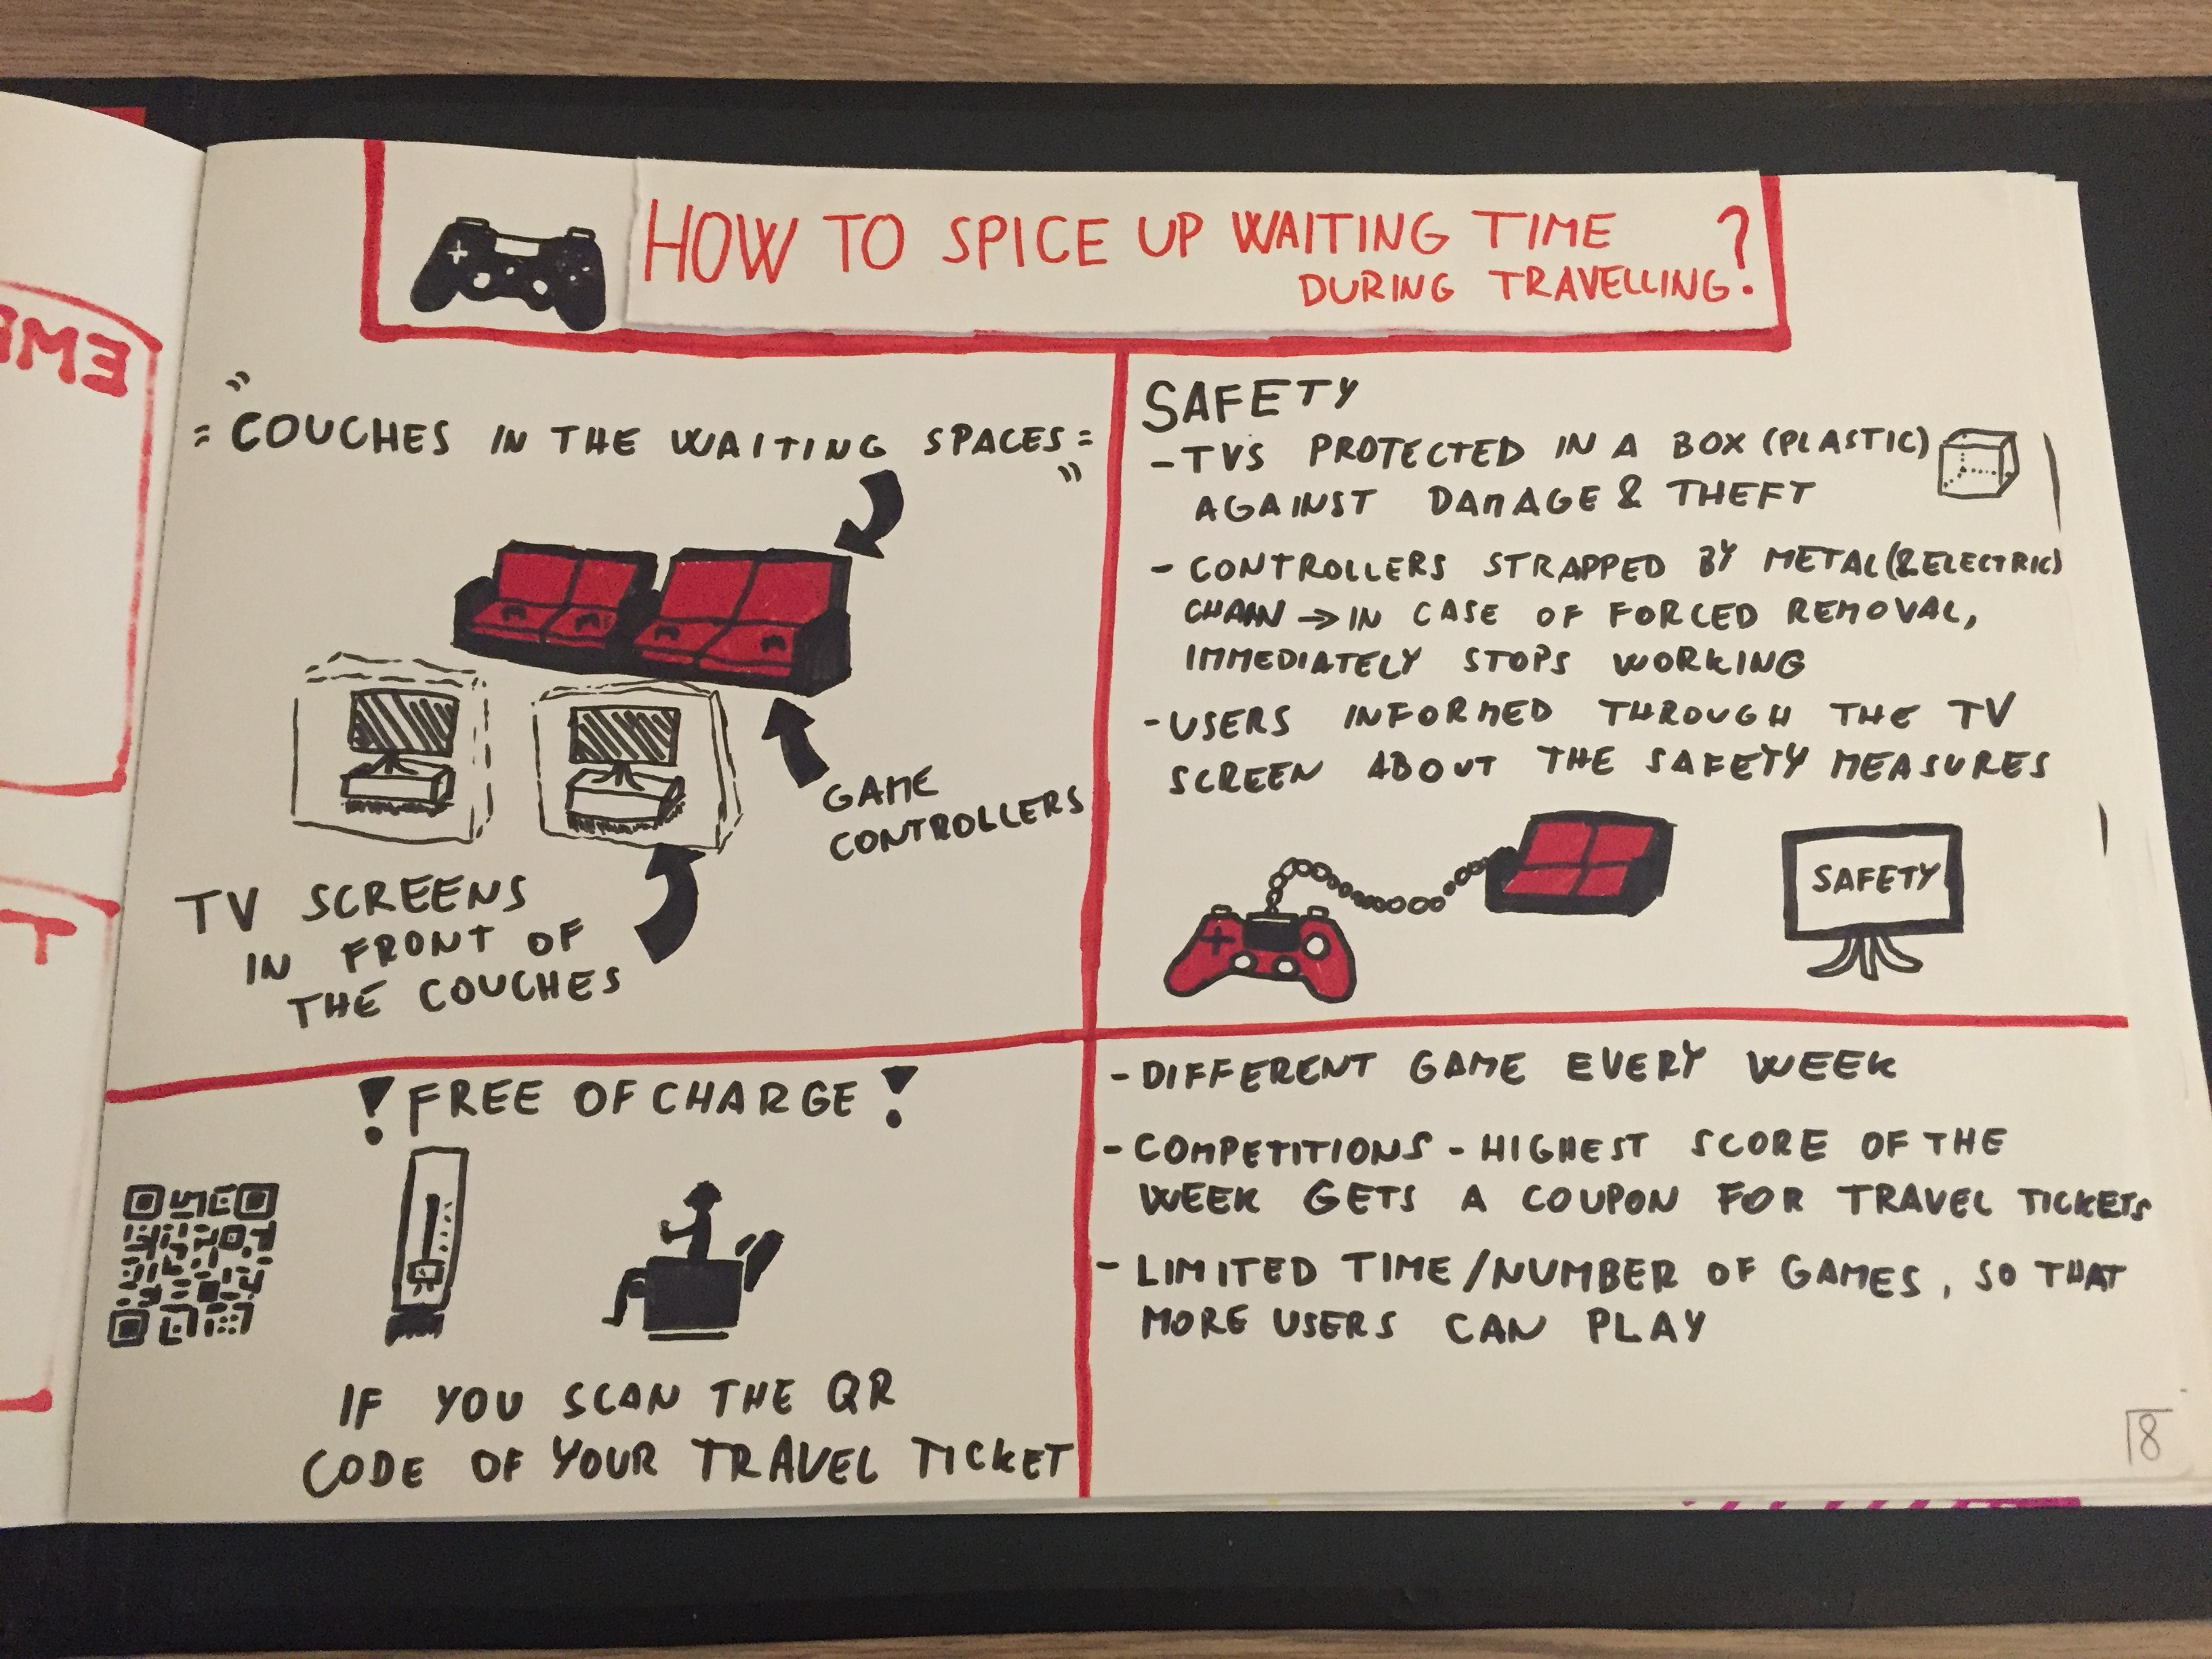 HOW TO SPICE UP WAITING TIME
DURING TRAVELLING?
= COUCHES IN THE WAITING SPACES =
GAME
CONTROLLERS
TV SCREENS
IN FRONT OF
THE COUCHES
SAFETY
- TVS PROTECTED IN A BOX (PLASTIC)
AGAINST DAMAGE & THEFT
- CONTROLLERS STRAPPED BY METAL (& ELECTRIC)
CHAIN → IN CASE OF FORCED REMOVAL,
IMMEDIATELY STOPS WORKING
- USERS INFORMED THROUGH THE TV
SCREEN ABOUT THE SAFETY MEASURES
SAFETY
! FREE OF CHARGE !
IF YOU SCAN THE QR
CODE OF YOUR TRAVEL TICKET
- DIFFERENT GAME EVERY WEEK
- COMPETITIONS - HIGHEST SCORE OF THE
WEEK GETS A COUPON FOR TRAVEL TICKETS
- LIMITED TIME / NUMBER OF GAMES, SO THAT
MORE USERS CAN PLAY
8